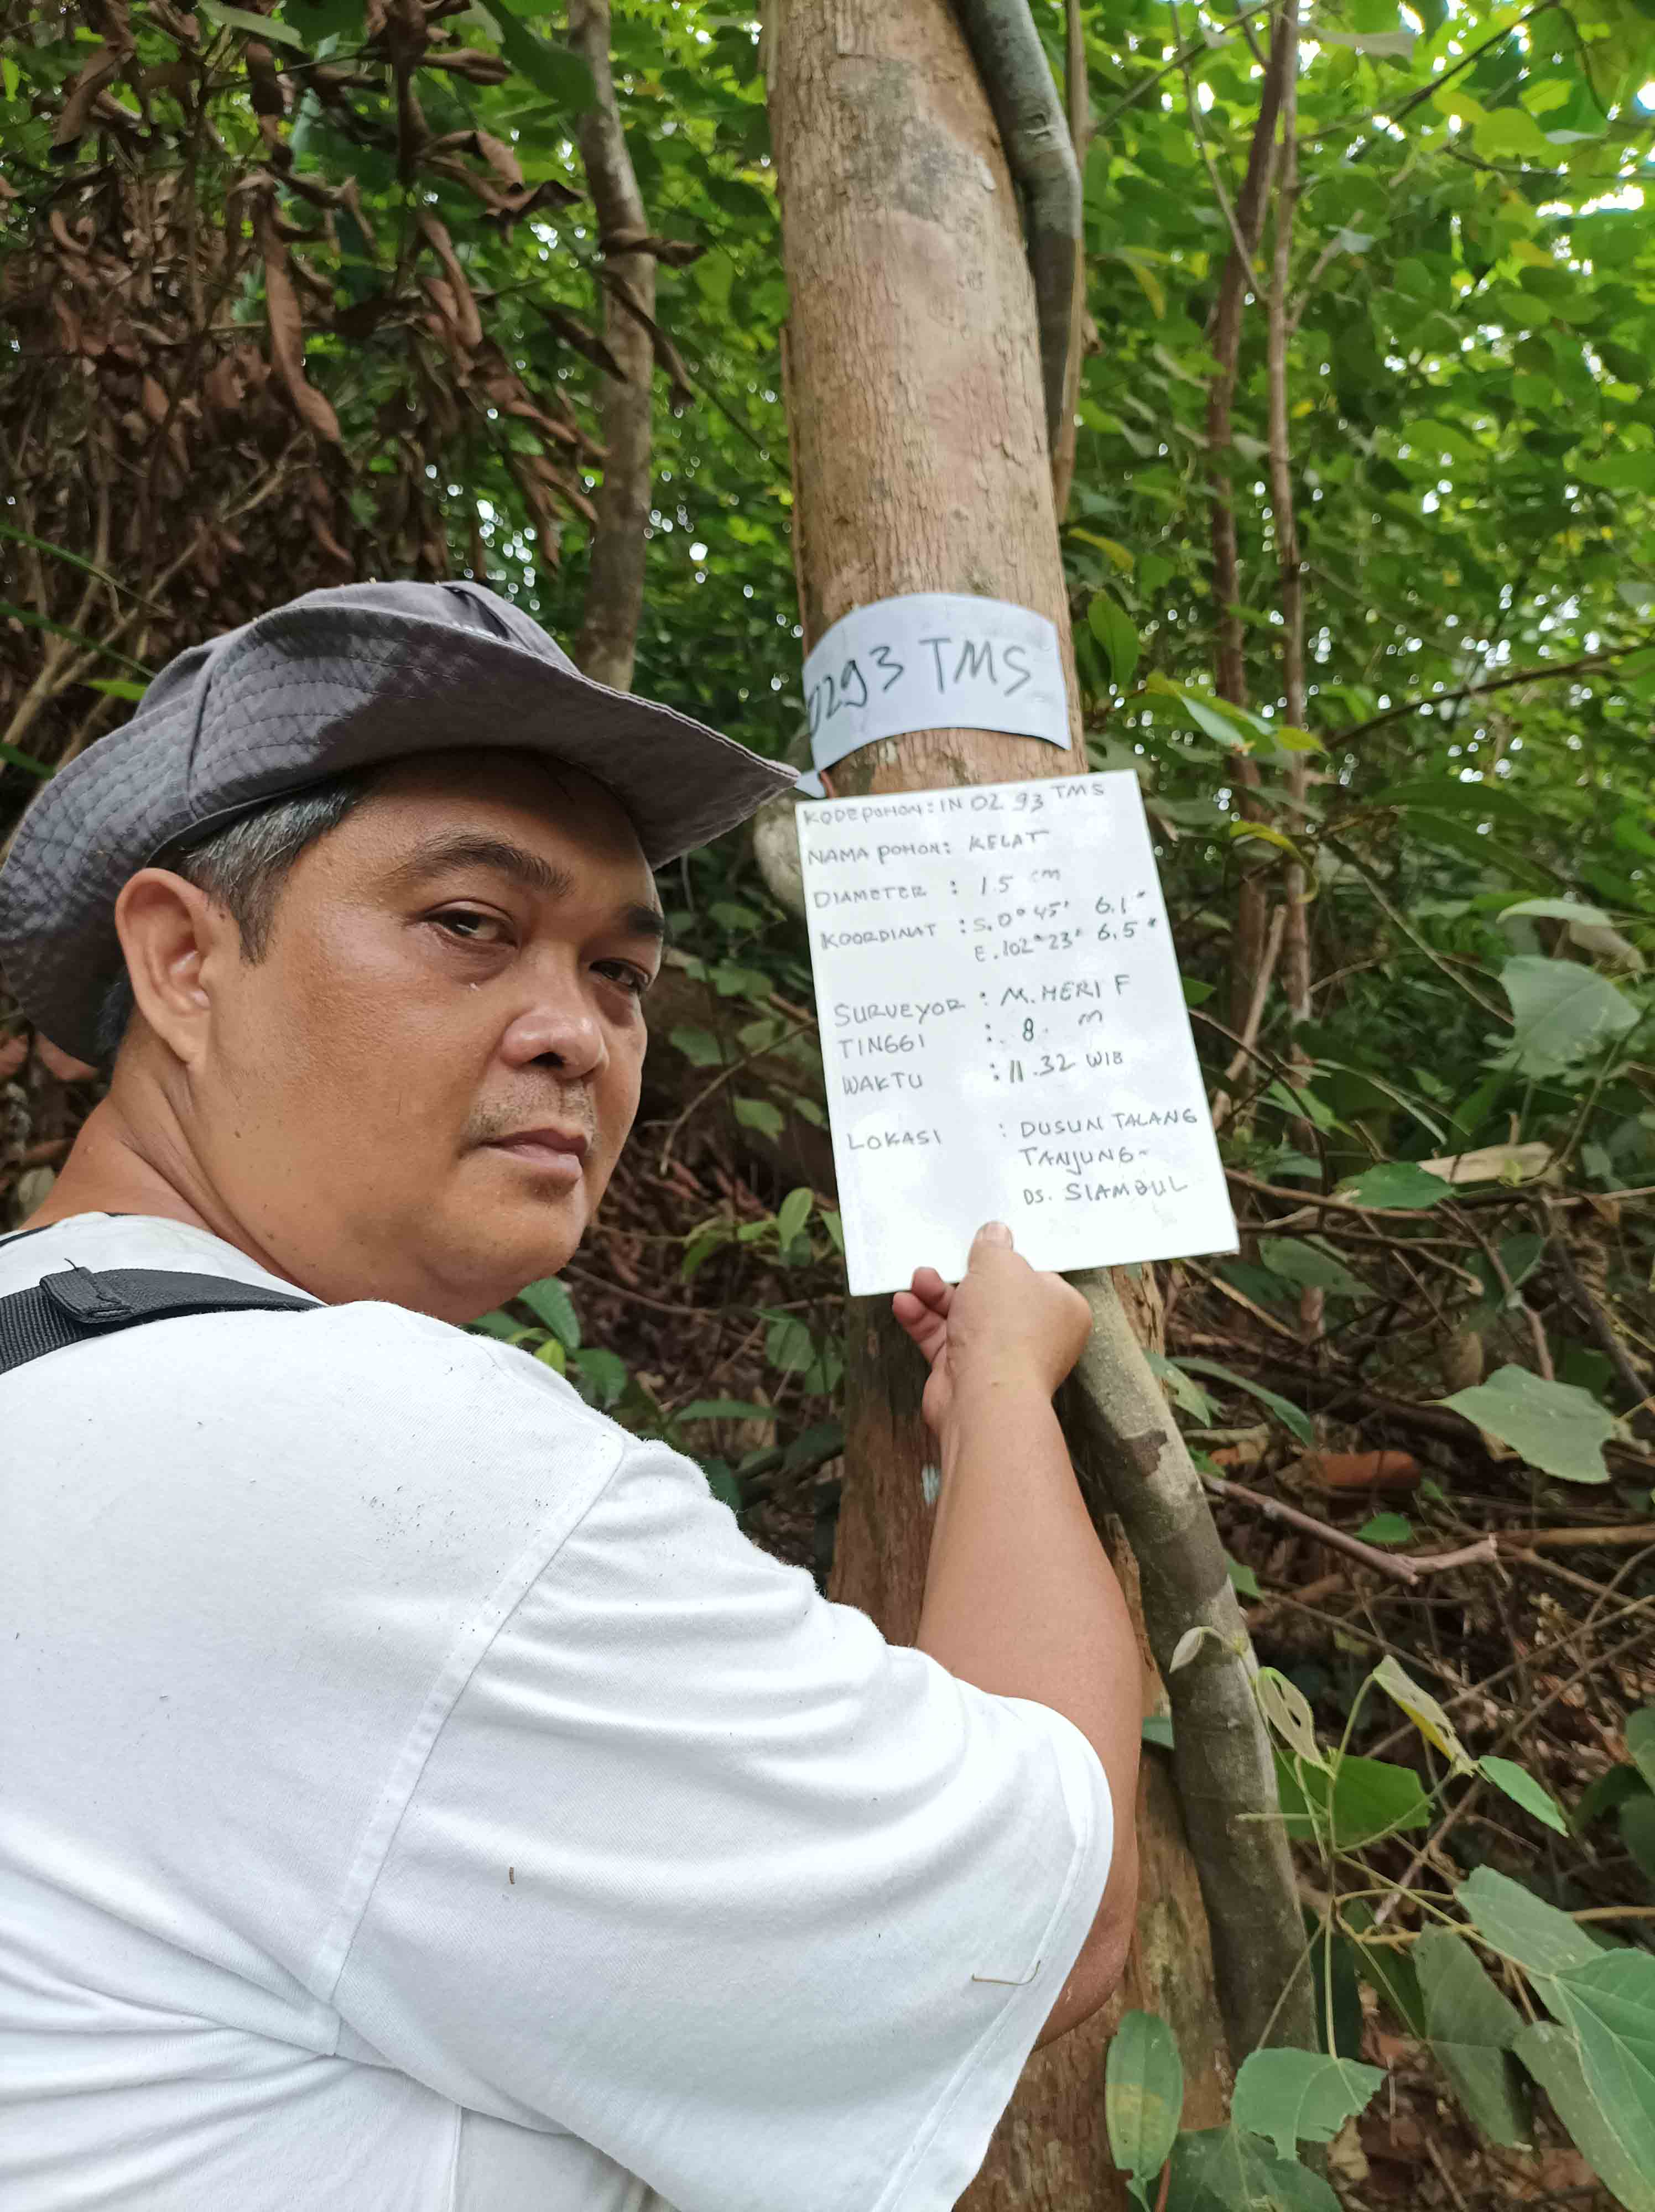 0293 TMS
KODE POHON : IN 02 93 TMS
NAMA POHON : KELAT
DIAMETER : 15 cm
KOORDINAT : S. 0° 45' 6.1"
E. 102° 23' 6.5"
SURVEYOR : M. HERI F
TINGGI : 8. m
WAKTU : 11.32 WIB
LOKASI : DUSUN TALANG
TANJUNG-
DS. SIAMBUL